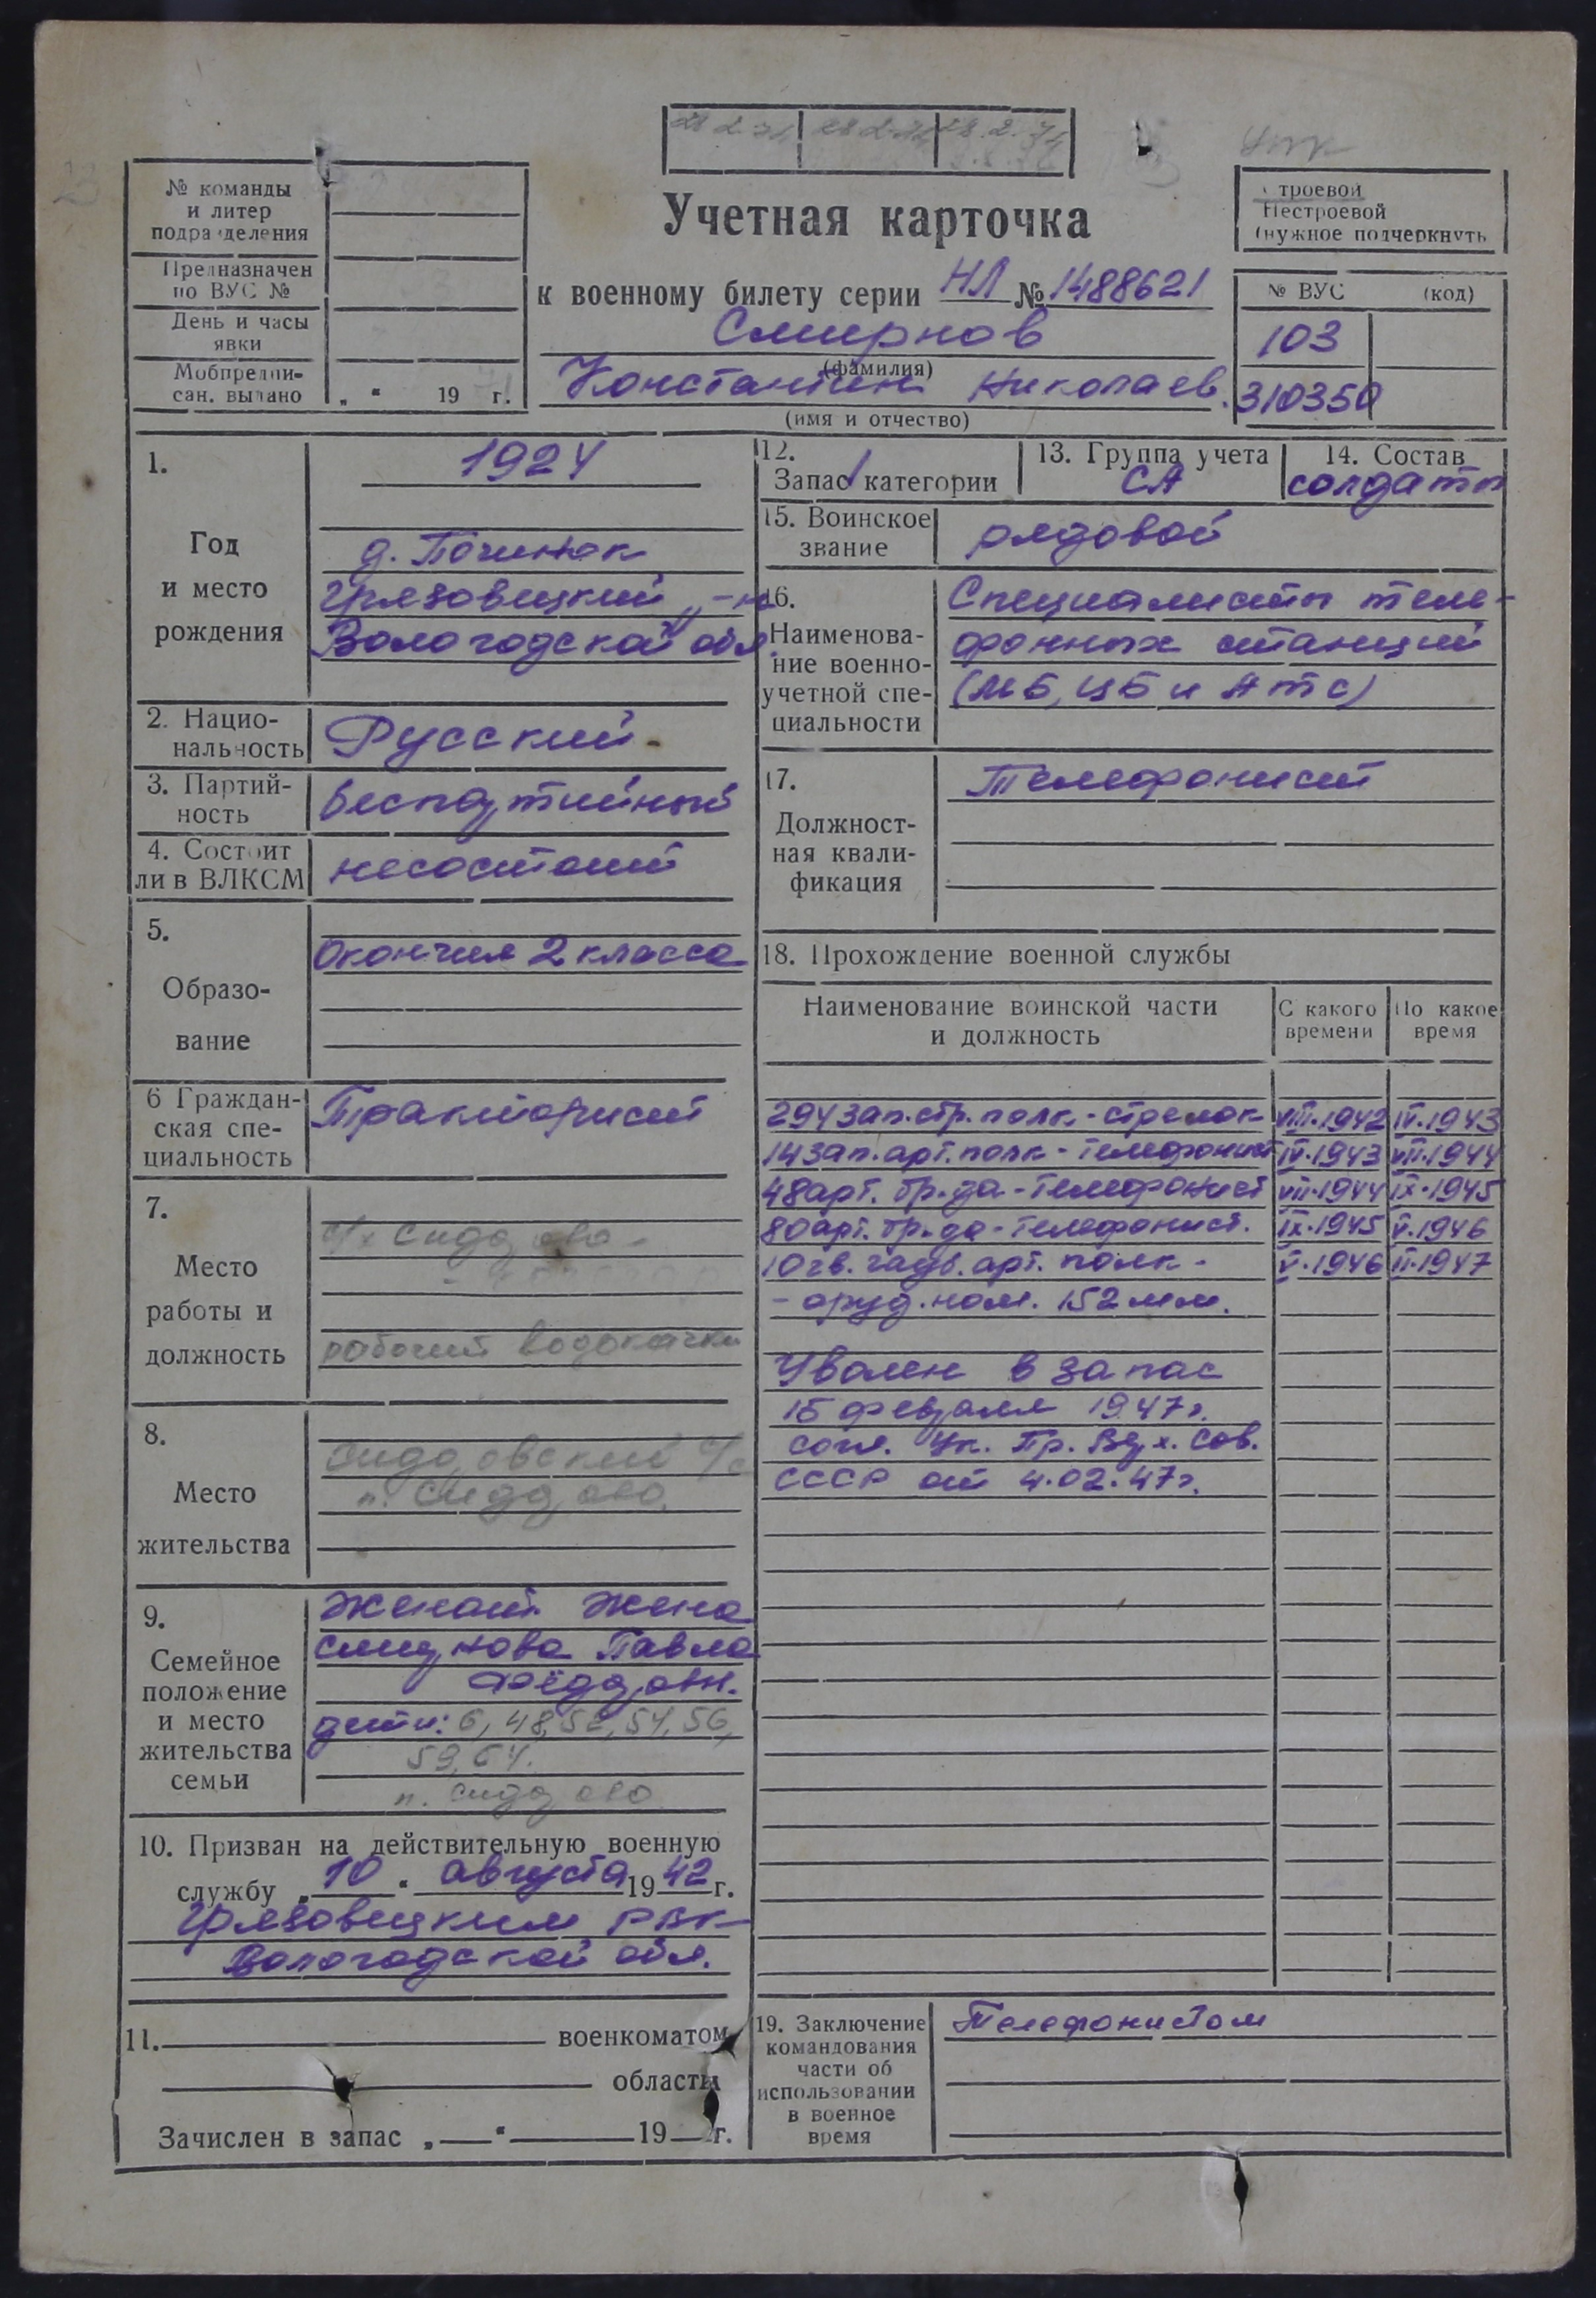 № команды
и литер
подразделения
Предназначен
по ВУС №
День и часы
явки
Мобпредпи-
сан. выдано
„ “ 19 г.
28.2.74
Учетная карточка
к военному билету серии НЛ № 1488621
Смирнов
(фамилия)
Константин Николаев.
(имя и отчество)
Строевой
Нестроевой
(нужное подчеркнуть
№ ВУС (код)
103
310350
1.
Год
и место
рождения
1924
д. Починок
Грязовецкий р-н
Вологодской обл.
2. Нацио-
нальность
Русский
3. Партий-
ность
беспартийный
4. Состоит
ли в ВЛКСМ
несостоит
5.
Образо-
вание
Окончил 2 класса
6 Граждан-
ская спе-
циальность
Тракторист
7.
Место
работы и
должность
с/х Сидорово
рабочий водокачки
8.
Место
жительства
Сидоровский с/с
п. Сидорово
9.
Семейное
положение
и место
жительства
семьи
Женат. Жена
Смирнова Павла
Фёдоровн.
дети: 6, 48, 52, 54, 56,
59, 64.
п. Сидорово
10. Призван на действительную военную
службу „10“ августа 1942 г.
Грязовецким РВК
Вологодской обл.
11. военкоматом
области
Зачислен в запас „ “ 19 г.
12.
Запас 1 категории
13. Группа учета
СА
14. Состав
солдаты
15. Воинское
звание
рядовой
16.
Наименова-
ние военно-
учетной спе-
циальности
Специалисты теле-
фонных станций
(МБ, ЦБ и АТС)
17.
Должност-
ная квали-
фикация
Телефонист
18. Прохождение военной службы
Наименование воинской части
и должность
С какого
времени
По какое
время
294 зап. стр. полк - стрелок VIII.1942 IV.1943
14 зап. арт. полк - телефонист IV.1943 VII.1944
48 арт. бр-да - телефонист VII.1944 IX.1945
80 арт. бр-да - телефонист. IX.1945 V.1946
10 гв. гауб. арт. полк - V.1946 II.1947
- оруд. ном. 152 мм.
Уволен в запас
15 февраля 1947 г.
согл. Ук. Пр. Верх. Сов.
СССР от 4.02.47 г.
19. Заключение
командования
части об
использовании
в военное
время
Телефонистом